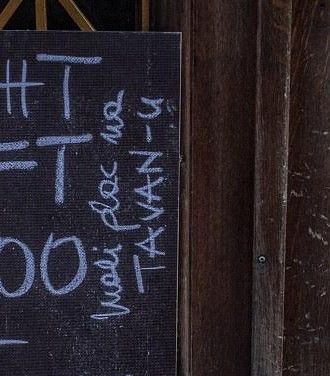 HT
FT
00
Mali plac na
TAVAN-u